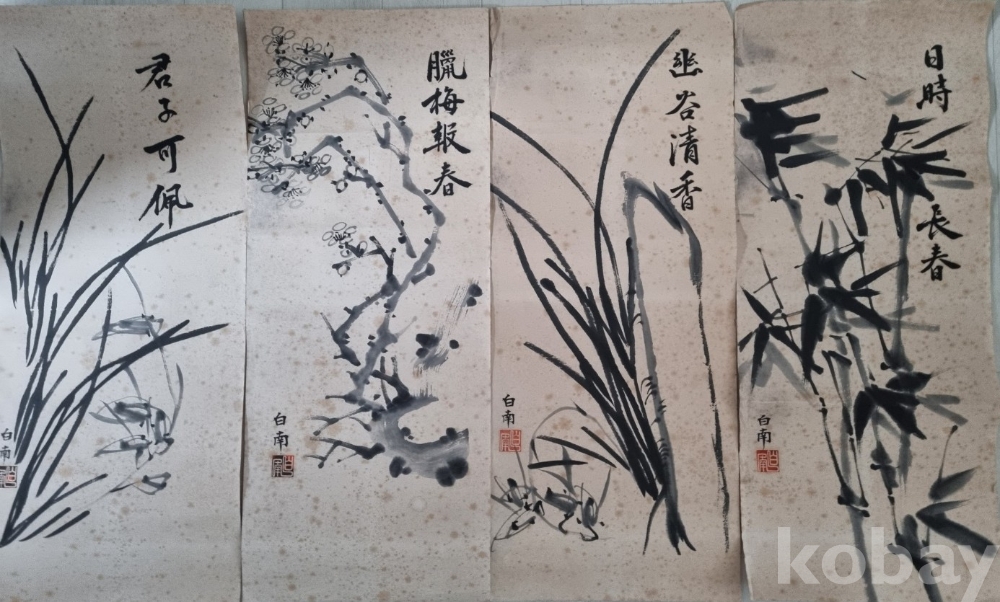 君子可佩
白南
臘梅報春
白南
幽谷清香
白南
日時長春
白南
kobay